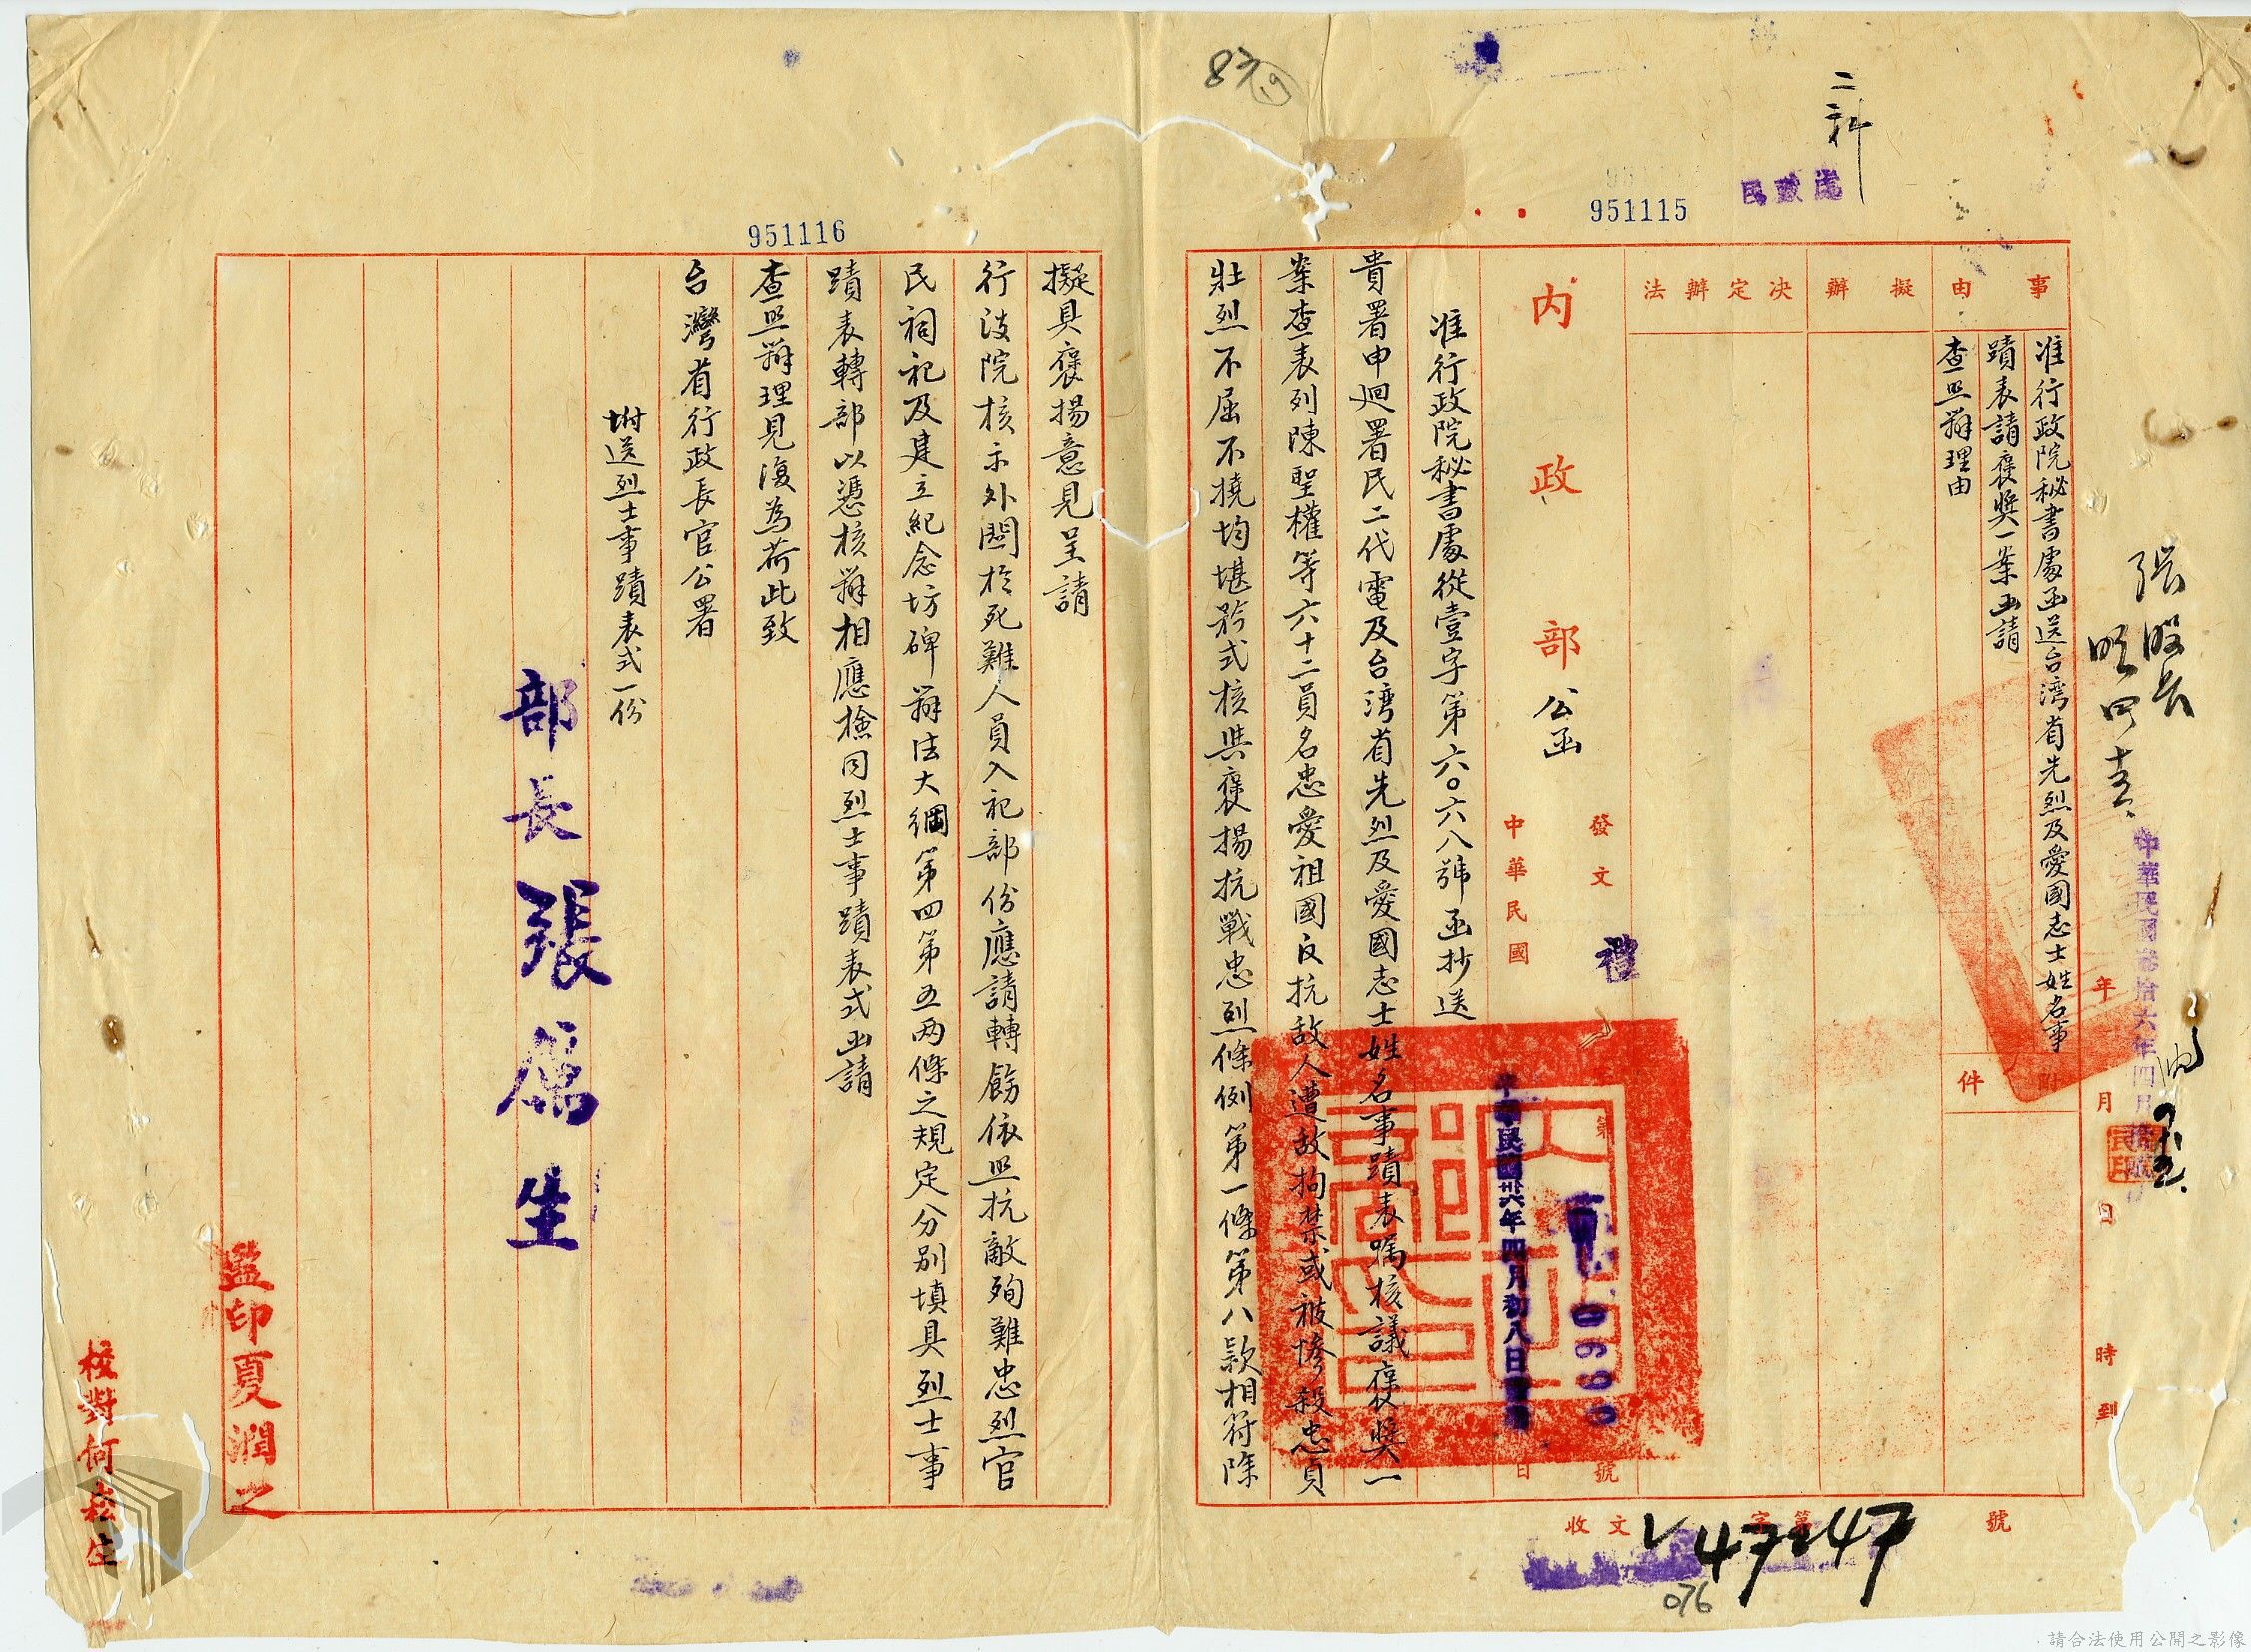 二科
民政處
951115
事由
擬辦
決定辦法
准行政院秘書處函送台湾省先烈及愛國志士姓名事
蹟表請褒獎一案函請
查照辦理由
附件
年 月 日 時到
內政部 公函
發文
禮
第
號
0690
中華民國
中華民國卅六年四月初八日
日
准行政院秘書處從壹字第六〇六八號函抄送
貴署申迴署民二代電及台湾省先烈及愛國志士姓名事蹟表囑核議褒獎一
案查表列陳聖權等六十二員名忠愛祖國反抗敌人遭敌拘禁或被慘殺忠貞
壯烈不屈不撓均堪矜式核與褒揚抗戰忠烈條例第一條第八款相符除
收文 字第 號
47247
076
951116
擬具褒揚意見呈請
行政院核示外關於死難人員入祀部份應請轉飭依照抗敵殉難忠烈官
民祠祀及建立紀念坊碑辦法大綱第四第五两條之規定分別填具烈士事
蹟表轉部以憑核辦相應檢同烈士事蹟表式函請
查照辦理見復為荷此致
台灣省行政長官公署
坿送烈士事蹟表式一份
部長張厲生
監印夏潤之
校對何崧生
請合法使用公開之影像